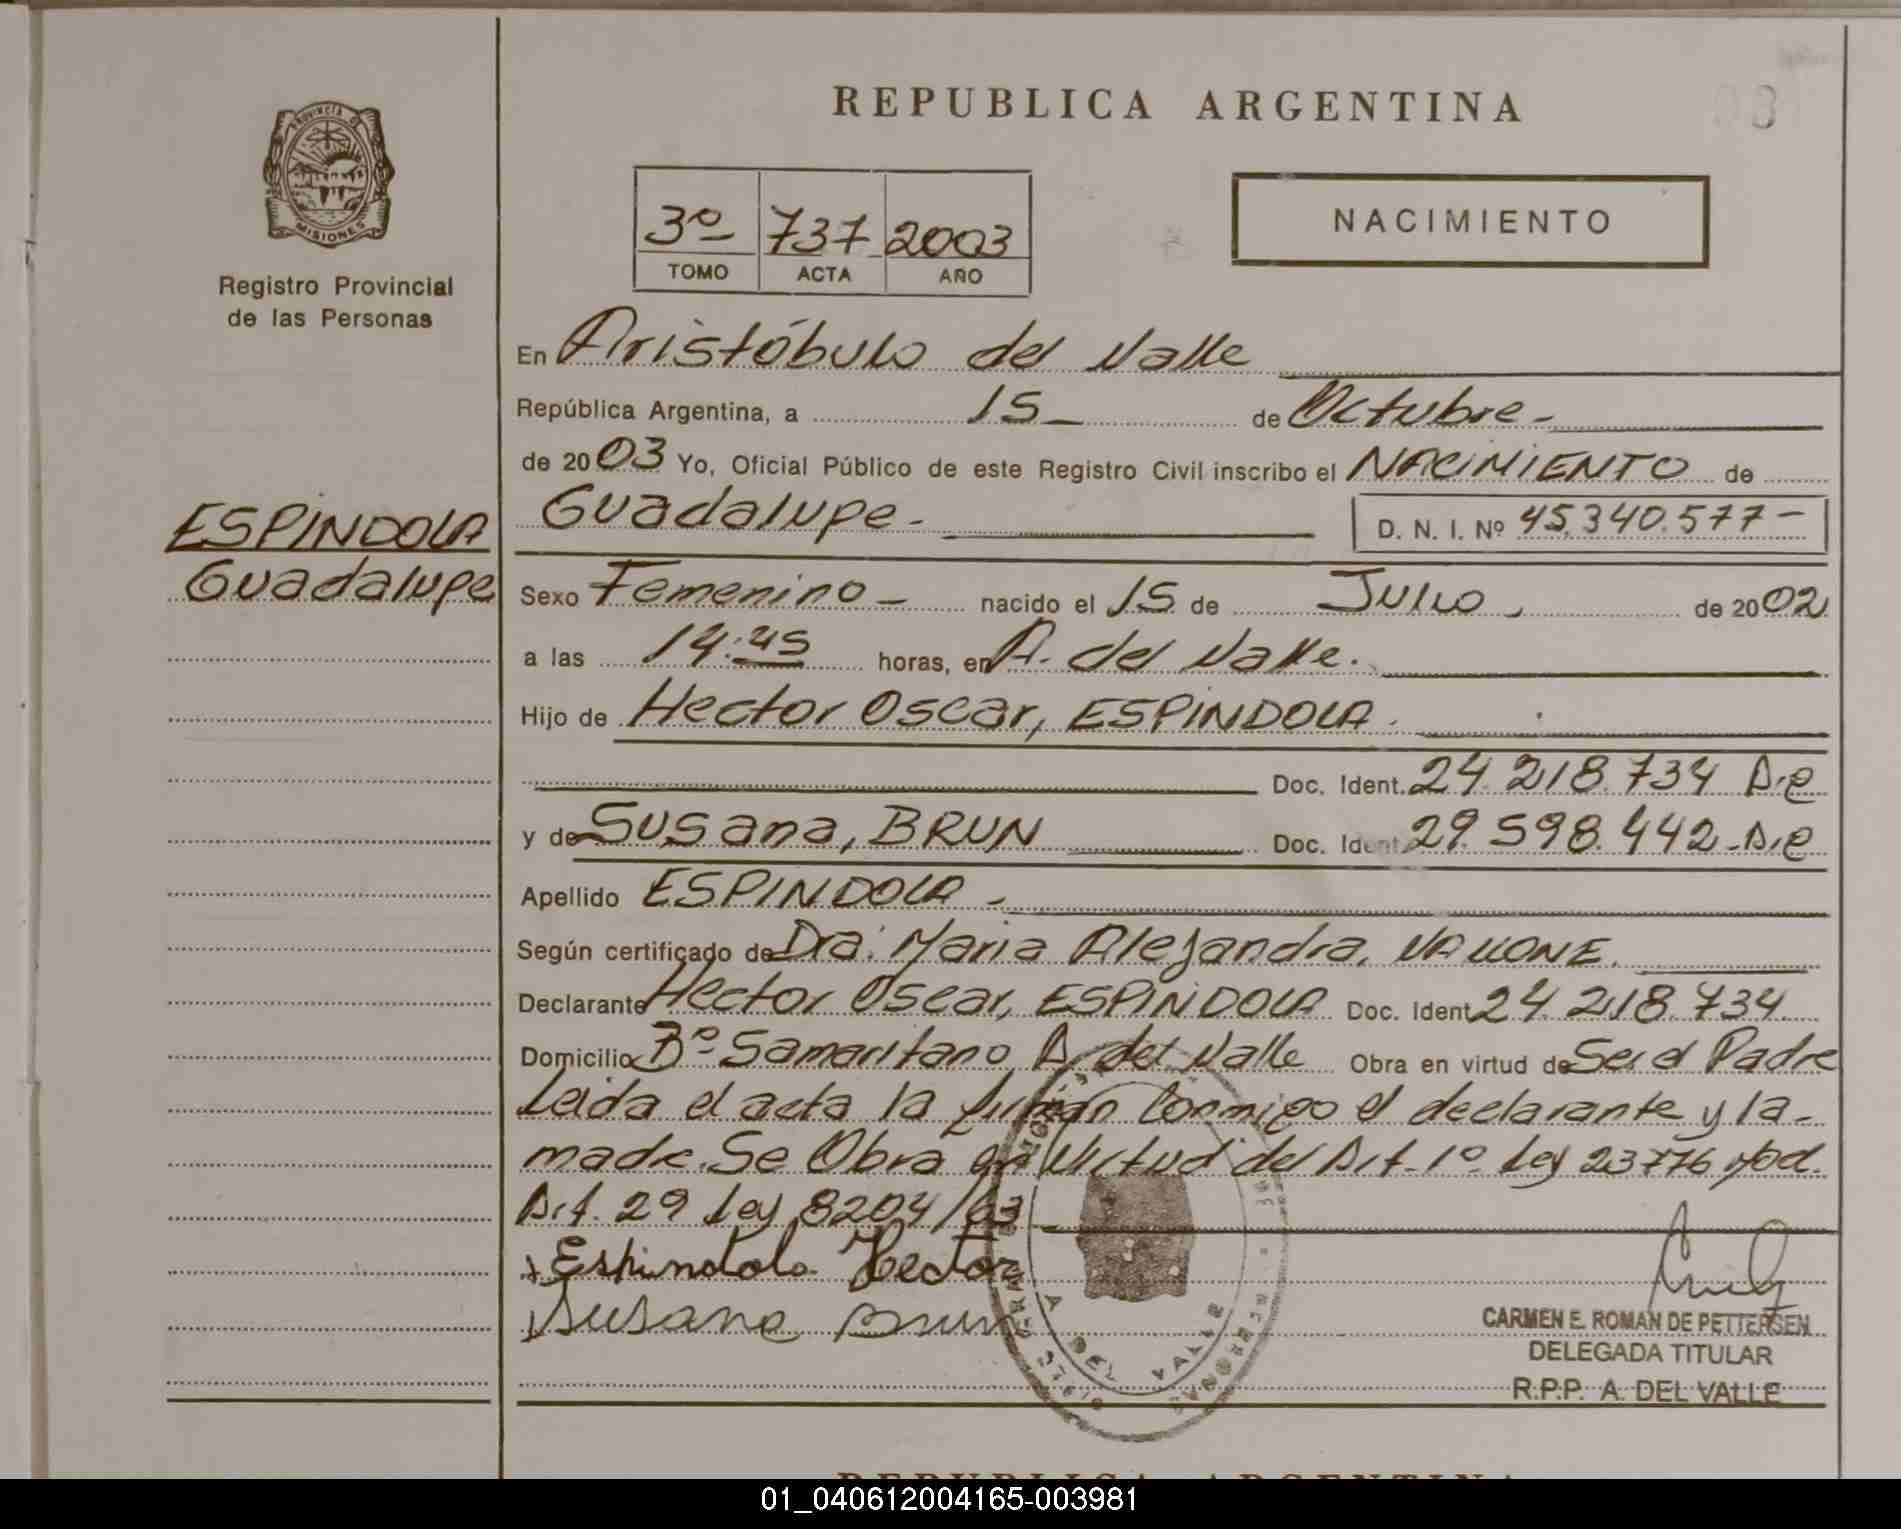 REPUBLICA ARGENTINA
PROVINCIA DE
MISIONES
Registro Provincial
de las Personas
3º 737 2003
TOMO ACTA AÑO
NACIMIENTO
En Aristóbulo del Valle
República Argentina, a 15 de Octubre-
de 2003 Yo, Oficial Público de este Registro Civil inscribo el NACIMIENTO de
ESPINDOLA
Guadalupe
Guadalupe- D. N. I. Nº 45.340.577-
Sexo Femenino- nacido el 15 de Julio de 2002
a las 14:45 horas, en A. del Valle.
Hijo de Hector Oscar, ESPINDOLA.
Doc. Ident. 24.218.734
y de Susana, BRUN Doc. Ident. 29.598.442
Apellido ESPINDOLA-
Según certificado de Dra. Maria Alejandra, VALLONE.
Declarante Hector Oscar, ESPINDOLA Doc. Ident 24.218.734.
Domicilio Bº Samaritano A. del Valle Obra en virtud de Ser el Padre
Leida el acta la firman Conmigo el declarante y la-
madre. Se Obra en Virtud del Art. 1º Ley 23776 Mod.
Art. 29 Ley 8204/63
Espindola Hector
Susana Brun
A DEL VALLE
CARMEN E. ROMAN DE PETTERSEN
DELEGADA TITULAR
R.P.P. A. DEL VALLE
REPUBLICA ARGENTINA
01_040612004165-003981